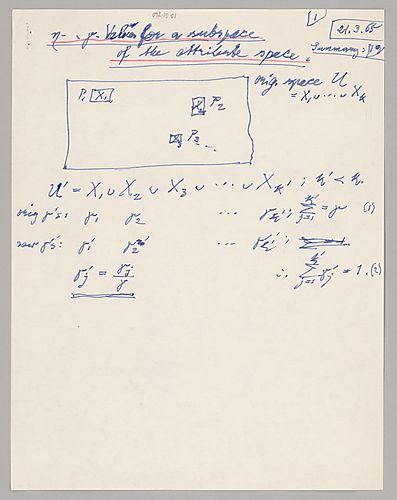 092-15-01
1
21.3.65
Summary: p9
η-, γ- Values for a subspace
of the attribute space.
orig. space U
= X₁ ∪ ... ∪ Xₖ
P₁ X₁
X₂ P₂
X₃ P₃ ...
U' = X₁ ∪ X₂ ∪ X₃ ∪ ... ∪ Xₖ' ; k' < k.
orig γ's: γ₁ γ₂ ... γₖ' ; Σⱼ₌₁ᵏ' = γ (1)
new γ's: γ₁' γ₂' ... γₖ'' ;
γⱼ' = γⱼ/γ ∴ Σⱼ₌₁ᵏ' γⱼ' = 1. (2)